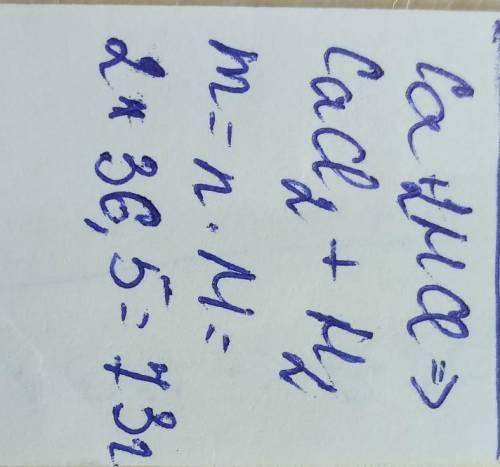 Ca + 2HCl =>
CaCl₂ + H₂
m = n · M =
2 * 36,5 = 73г